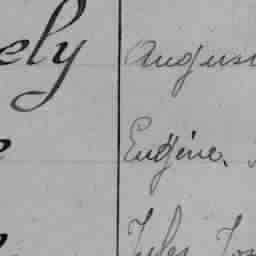 ely August
e Eugène,
Jules Jos